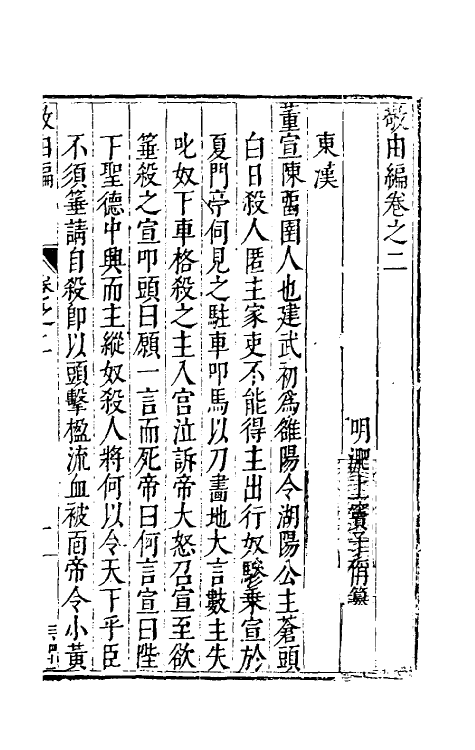 敬由編卷之二
明 竇子偁纂
東漢
董宣陳畱圉人也建武初爲雒陽令湖陽公主蒼頭
白日殺人匿主家吏不能得主出行奴驂乗宣於
夏門亭伺見之駐車叩馬以刀畵地大言數主失
叱奴下車格殺之主入宫泣訴帝大怒召宣至欲
箠殺之宣叩頭曰願一言而死帝曰何言宣曰陛
下聖德中興而主縱奴殺人將何以令天下乎臣
不須箠請自殺卽以頭擊楹流血被面帝令小黃
敬由編
卷之二
一